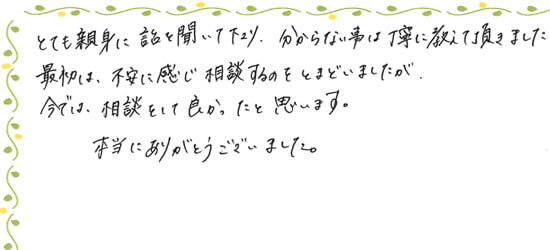 とても親身に話を聞いて下さり、分からない事は丁寧に教えて頂きました
最初は、不安に感じ相談するのをとまどいましたが、
今では、相談をして良かったと思います。
本当にありがとうございました。